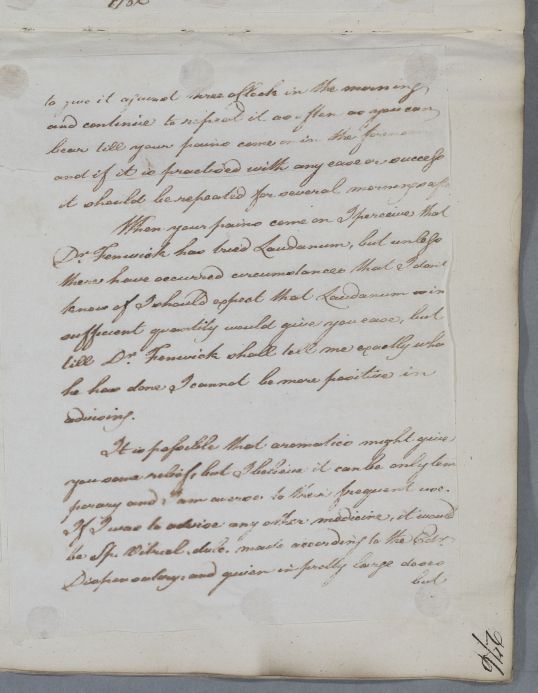 to give it around three aflock in the morning
and continue to repeat it as often as you can
bear till your pains come on in the forenoon
and if it is practised with any ease or success
it should be repeated for several mornings
When your pains come on I perceive that
Dr. Fenwick has tried Laudanum, but unless
there have occurred circumstances that I don't
know of I should expect that Laudanum in
sufficient quantity would give you ease, but
till Dr. Fenwick shall tell me exactly who
he has done I cannot be more positive in
advising.
It is possible that aromatics might give
you some relief, but I believe it can be only tem
porary and I am averse to their frequent use.
If I was to advise any other medicine, it would
be Sp. Vitriol. dulc. made according to the Edr.
Dispensatory, and given in pretty large doses
but